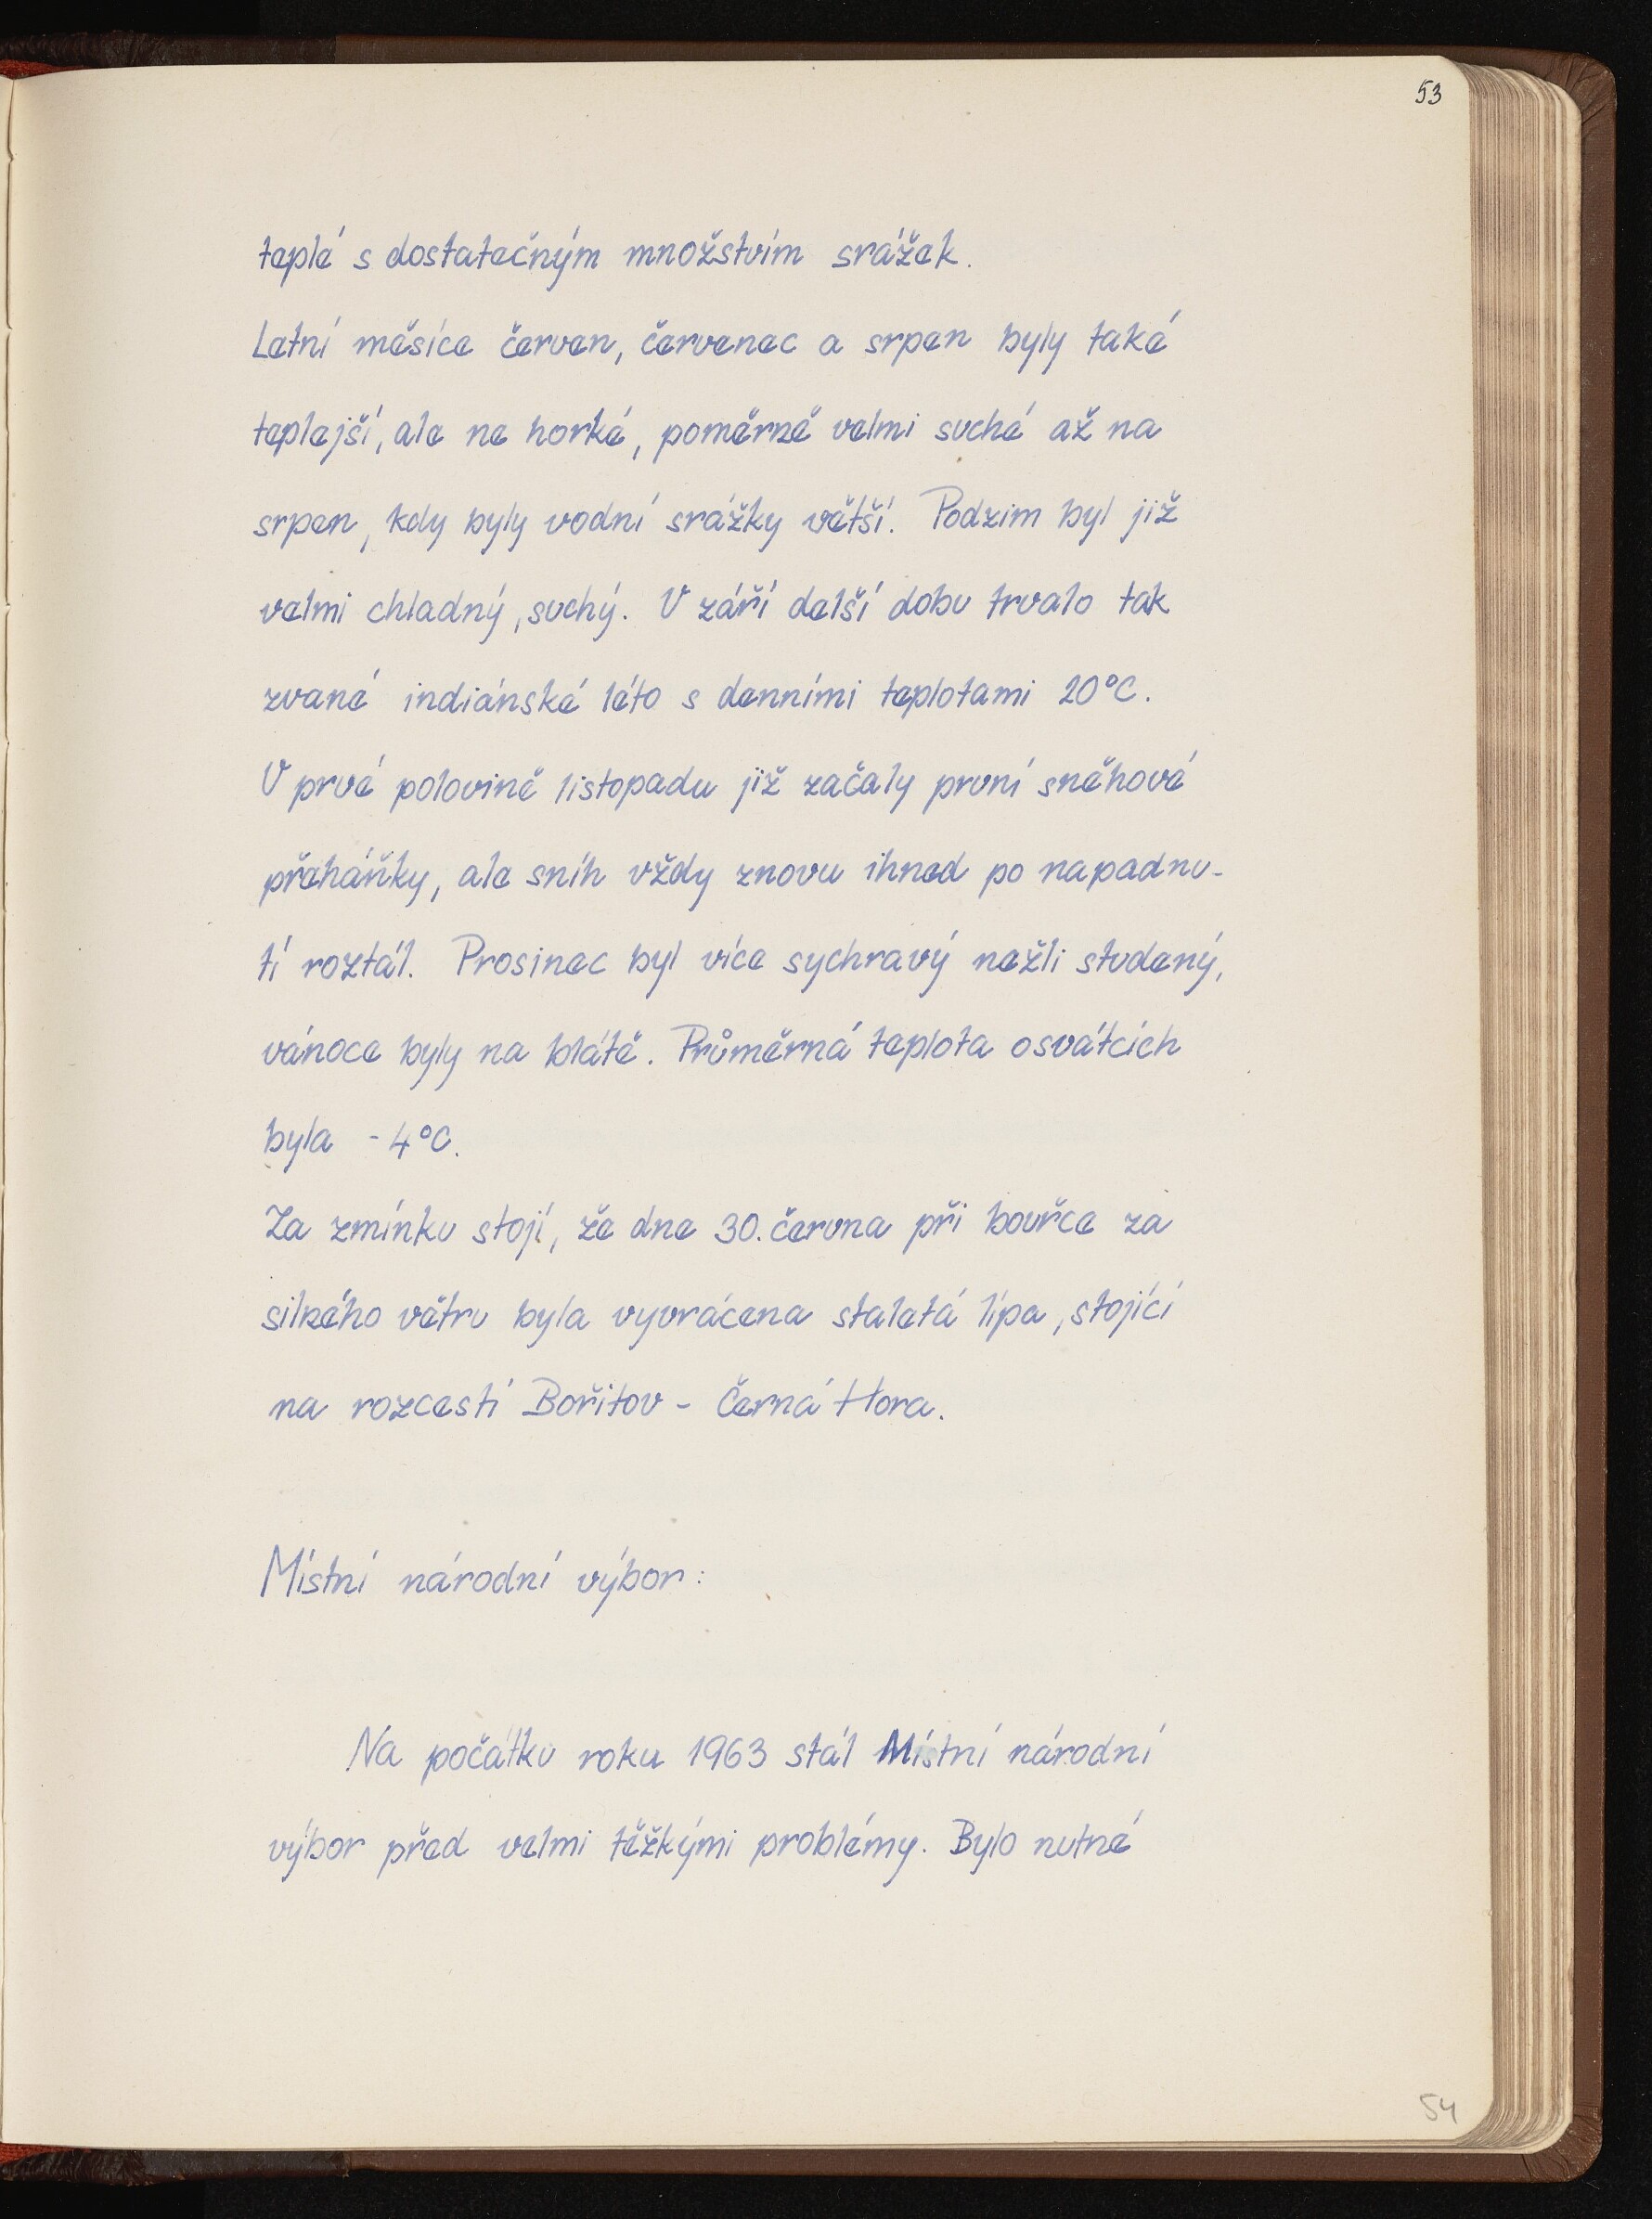 53
teplé s dostatečným množstvím srážek.
Letní měsíce červen, červenec a srpen byly také
teplejší, ale ne horké, poměrně velmi suché až na
srpen, kdy byly vodní srážky větší. Podzim byl již
velmi chladný, suchý. V září delší dobu trvalo tak
zvané indiánské léto s denními teplotami 20°C.
V prvé polovině listopadu již začaly první sněhové
přeháňky, ale sníh vždy znovu ihned po napadnu-
tí roztál. Prosinec byl více sychravý nežli studený,
vánoce byly na blátě. Průměrná teplota o svátcích
byla - 4°C.
Za zmínku stojí, že dne 30. června při bouřce za
silného větru byla vyvrácena staletá lípa, stojící
na rozcestí Bořitov - Černá Hora.
Místní národní výbor:
Na počátku roku 1963 stál Místní národní
výbor před velmi těžkými problémy. Bylo nutné
54